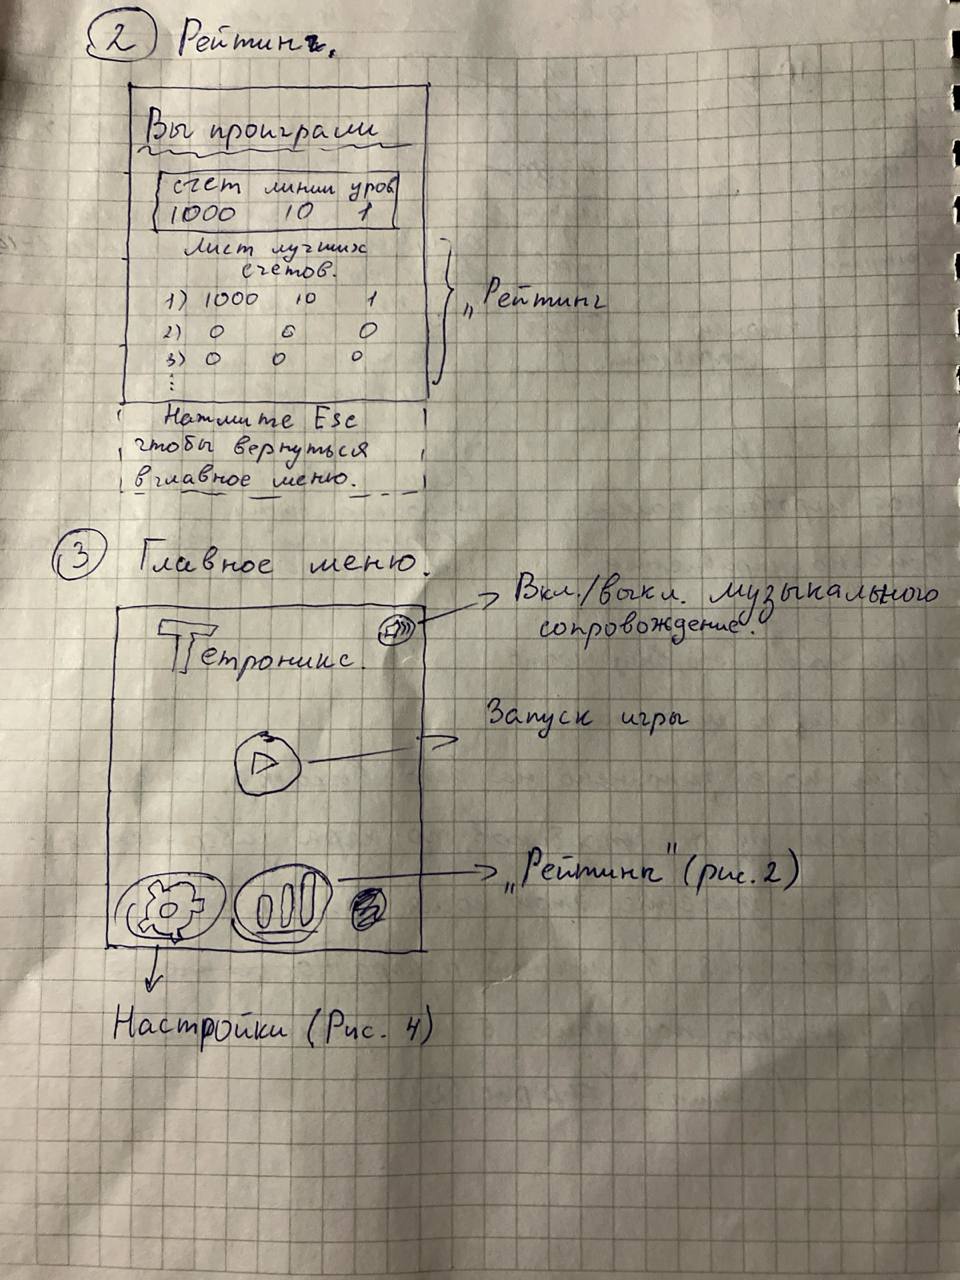 2 Рейтинг.
Вы проиграли
счет линии уров
1000 10 1
Лист лучших
счетов.
1) 1000 10 1
2) 0 0 0
3) 0 0 0
„Рейтинг
Нажмите Esc
чтобы вернуться
в главное меню.
3 Главное меню.
Вкл./выкл. музыкального
сопровождение.
Тетроникс.
Запуск игры
„Рейтинг" (рис. 2)
Настройки (Рис. 4)